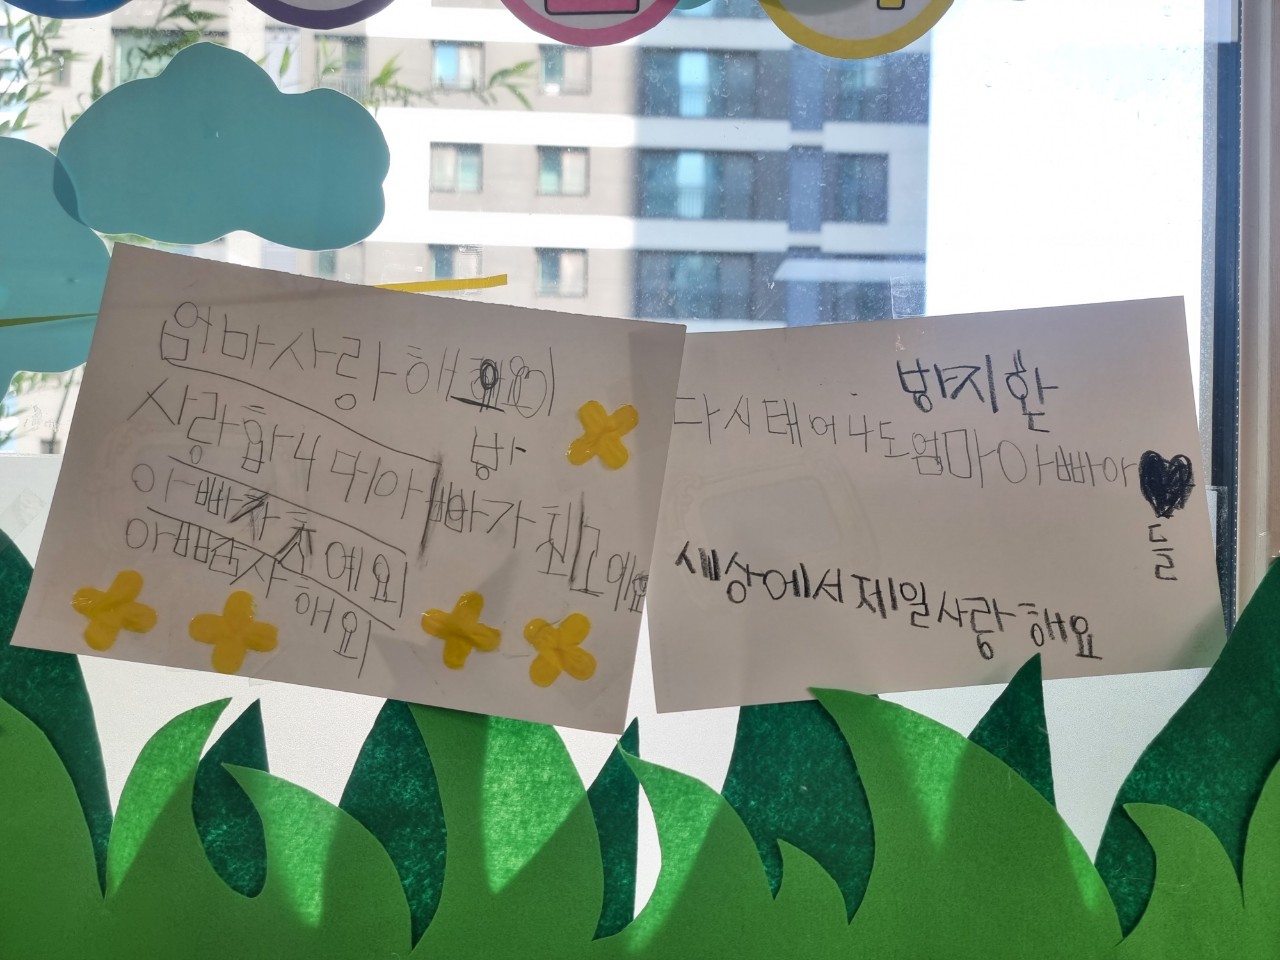 엄마사랑해요
사랑합니다
방
아빠가 최고예요
아빠 최고예요
아빠 감사해요
방지환
다시태어나도엄마아빠아
들
세상에서제일사랑해요